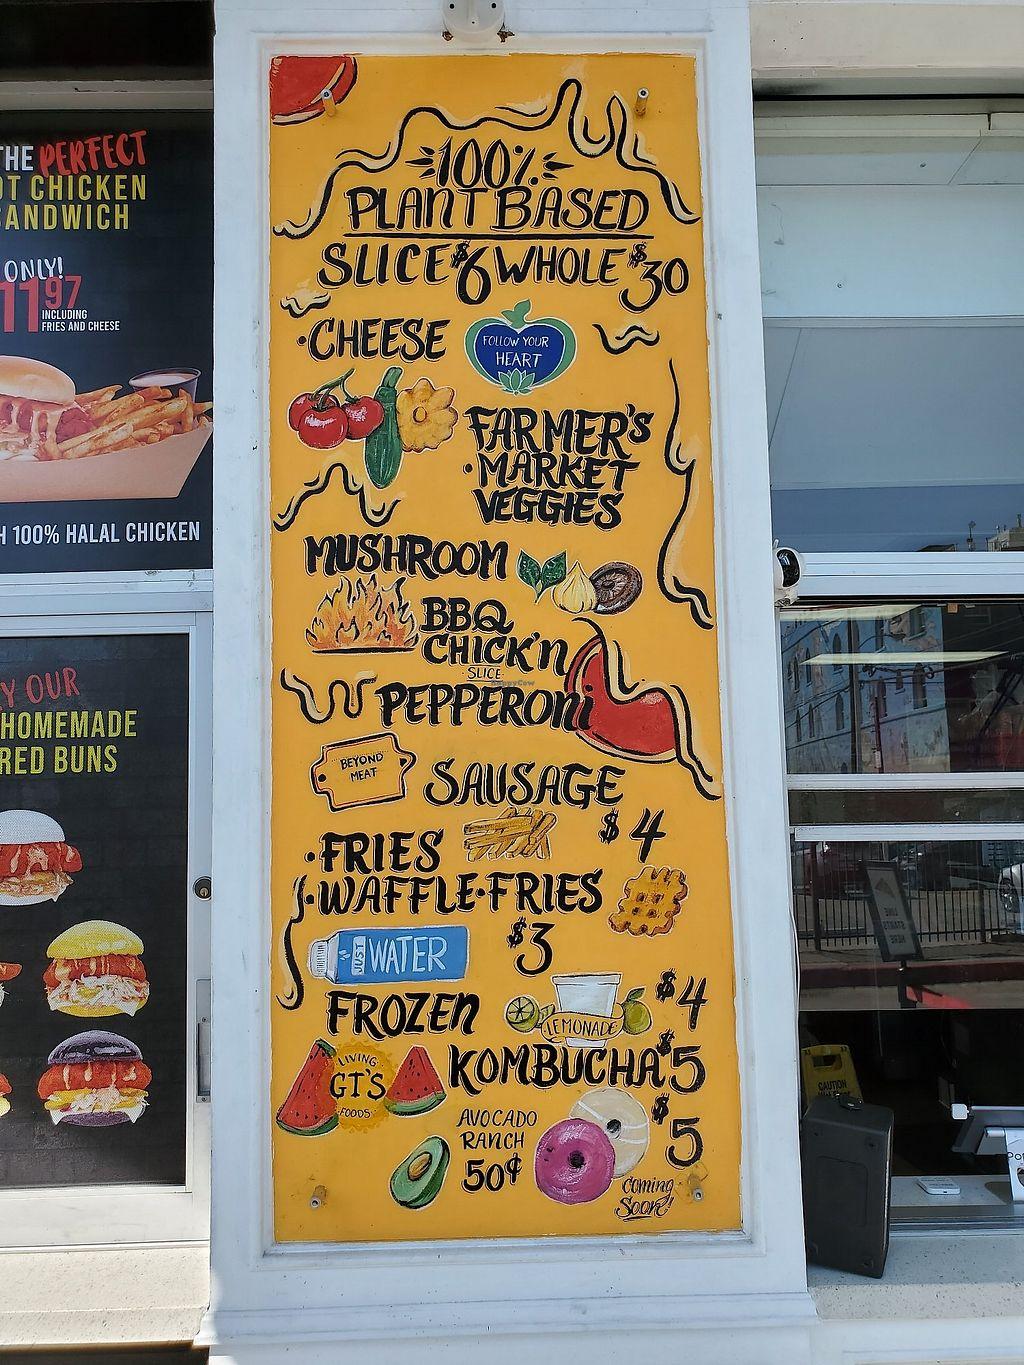 THE PERFECT
OT CHICKEN
SANDWICH
ONLY!
11.97
INCLUDING
FRIES AND CHEESE
H 100% HALAL CHICKEN
Y OUR
HOMEMADE
RED BUNS
100%
PLANT BASED
SLICE $6 WHOLE $30
·CHEESE
FOLLOW YOUR
HEART
FARMER'S
·MARKET
VEGGIES
MUSHROOM
BBQ
CHICK'n
SLICE
HappyCow
PEPPERONi
BEYOND
MEAT
SAUSAGE
·FRIES $4
·WAFFLE·FRIES
JUST WATER $3
FROZEN LEMONADE $4
LIVING
GT'S
FOODS
KOMBUCHA $5
AVOCADO
RANCH
50¢
$5
Coming
Soon!
CAUTION
LINE
STARTS
HERE